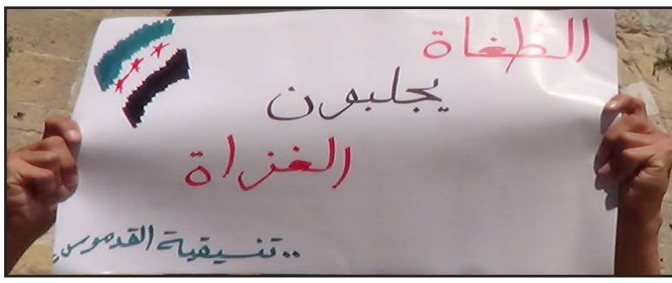 الطغاة
يجلبون
الغزاة
..تنسيقية القدموس..